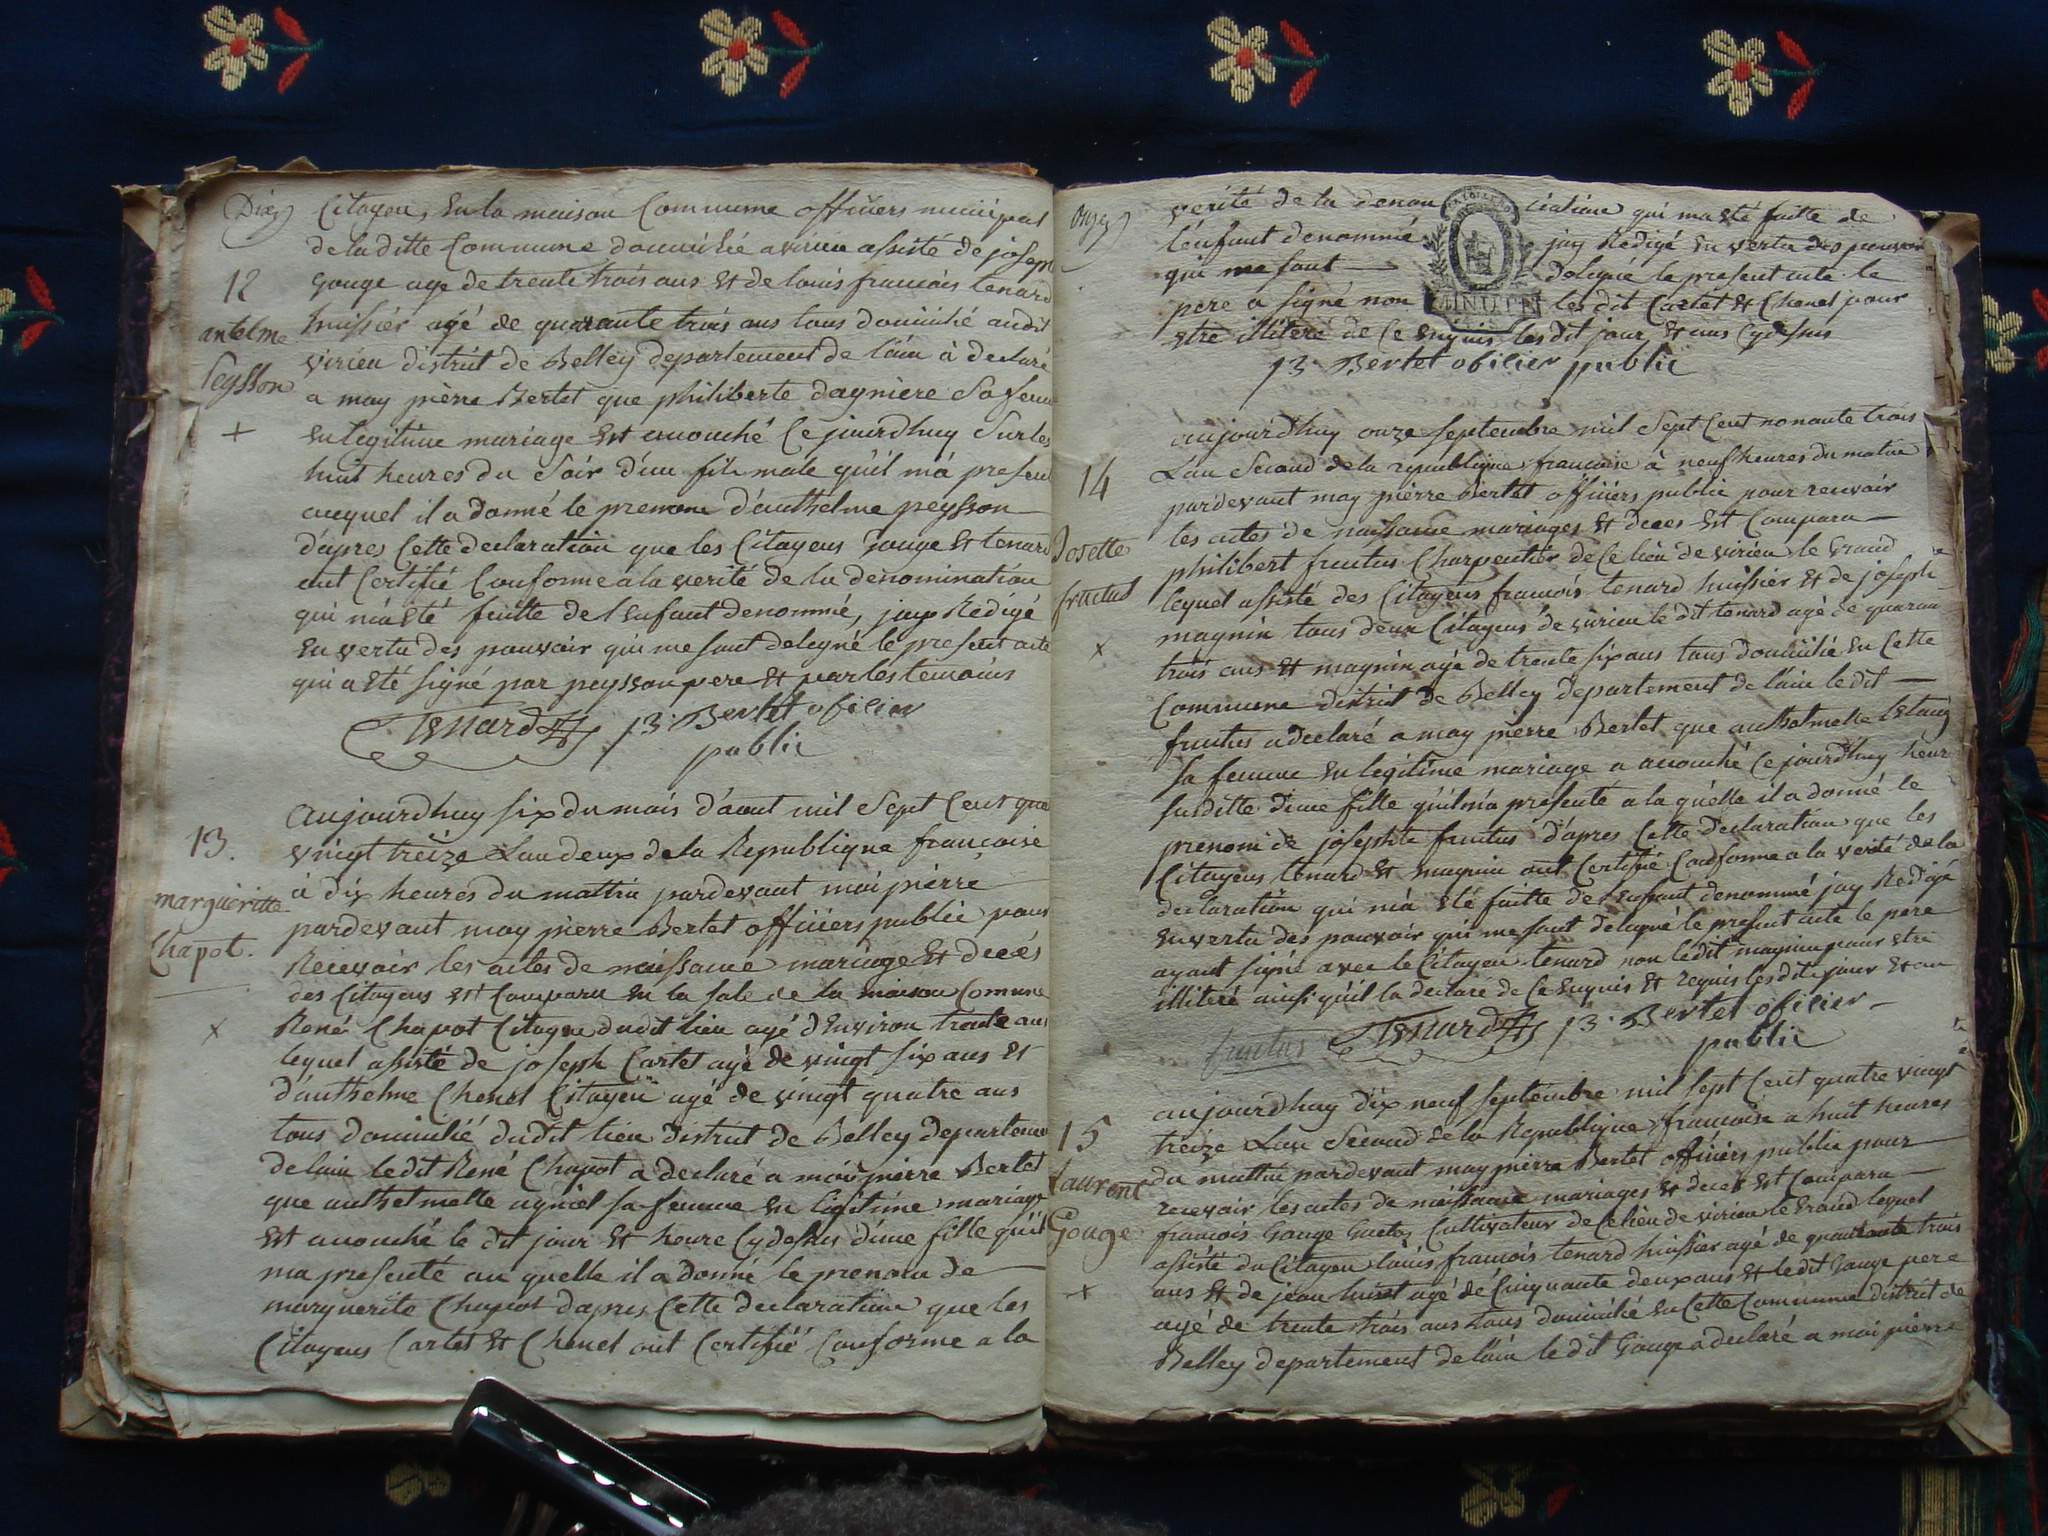 Dix
Citoyen, en la maison Commune officiers municipal
de la ditte Commune domicilié a virieu assisté de joseph
12
gouge age de trente trois ans et de louis francois tenard
antelme
huissiér agé de quarante trois ans tous domicilié audit
peysson
virieu district de Belley departement de l'ain à declaré
a moy pièrre Bertet que philiberte dagniere sa femme
+
en legitime mariage est acouché ce jourdhuy sur les
huit heures du soir d'un fils male qu'il m'a presenté
auquel il a donné le prenom d'anthelme peysson
d'apres cette declaration que les Citoyens gouge et tenard
ont Certifié Conforme a la verité de la denomination
qui m'a été faitte de l'enfant denommé, jay Redigé
en vertu des pouvoir qui me sont delegué le present acte
qui a été signé par peysson pere et par les temoins
Tenard p3. Bertet oficier
public
aujourdhuy six du mois d'aout mil sept cent quatre
13.
vingt treize L'an deux de la Republique francoise
à dix heures du mattin pardevant moi pièrre
margueritte
pardevant moy pierre Bertet officiers public pour
Chapot.
Recevoir les actes de naissance mariage et decés
des Citoyens est comparu en la sale de la maison Comune
x
René Chapot Citoyen dudit lieu agé d'environ trente ans
lequel assisté de joseph Cartet agé de vingt six ans et
d'anthelme Chenel Citoyen agé de vingt quatre ans
tous domicilié dudit lieu district de Belley departement
de lain le dit René Chapot a declaré a moi pierre Bertet
que anthelmette agniel sa femme en légitime mariage
est acouché le dit jour et heure cy dessus d'une fille qu'il
ma presenté au quelle il a donné le prenom de
marguerite Chapot dapres cette declaration que les
Citoyens Cartet et Chenel ont Certifié Conforme a la
Onze
verité de la denonciation qui ma été faitte de
l'enfant denommé jay Redigé en vertu des pouvoir
qui me sont delegué le present acte le
pere a signé non les dit Cartet et Chenel pour
MINUTE
etre illiteré de ce enquis les dit jour et ans cydessus
p3. Bertet oficier public
aujourd'huy onze septembre mil sept cent nonante trois
14
L'an second de la republique francoise à neuf heures du matin
pardevant moy pierre Bertet officiers public pour recevoir
les actes de naissance mariages et deces est Comparu
Josette
philibert fructus Charpentiér de ce lieu de virieu le Grand
fructus
lequel assisté des Citoyens francois tenard huissiér et de joseph
x
magnin tous deux Citoyens de virieu le dit tenard agé de quarante
trois ans et magnin agé de trente six ans tous domicilié en cette
Commune district de Belley departement de l'ain le dit
fructus a declaré a moy pierre Bertet que anthelmette
sa femme en legitime mariage a acouché ce jourdhuy heure
susditte d'une fille qu'il m'a presenté a la quelle il a donné le
prenom de josephte fructus d'apres cette declaration que les
Citoyens tenard et magnin ont Certifié Conforme a la verité de la
declaration qui m'a été faitte de l'enfant denommé jay Redigé
en vertu des pouvoir qui me sont delegué le present acte le pere
ayant signé avec le Citoyen tenard non le dit magnin pour etre
illiteré ainsi qu'il la declaré de ce enquis et requis les dit jour et an
fructus Tenard p3. Bertet oficier
public
aujourdhuy dix neuf septembre mil sept cent quatre vingt
15
treize L'an second de la Republique francoise a huit heures
du mattin pardevant moy pierre Bertet officiers public pour
Laurent
recevoir les actes de naissance mariages et deces est Comparu
Gouge
francois Gouge Cultivateur de ce lieu de virieu le Grand lequel
assisté du Citoyen louis francois tenard huissiér agé de quarante trois
+
ans et de jean agé de Cinquante deux ans et ledit Gouge pere
agé de trente trois ans tous domicilié en cette Commune district de
Belley departement de l'ain le dit Gouge a declaré a moi pierre